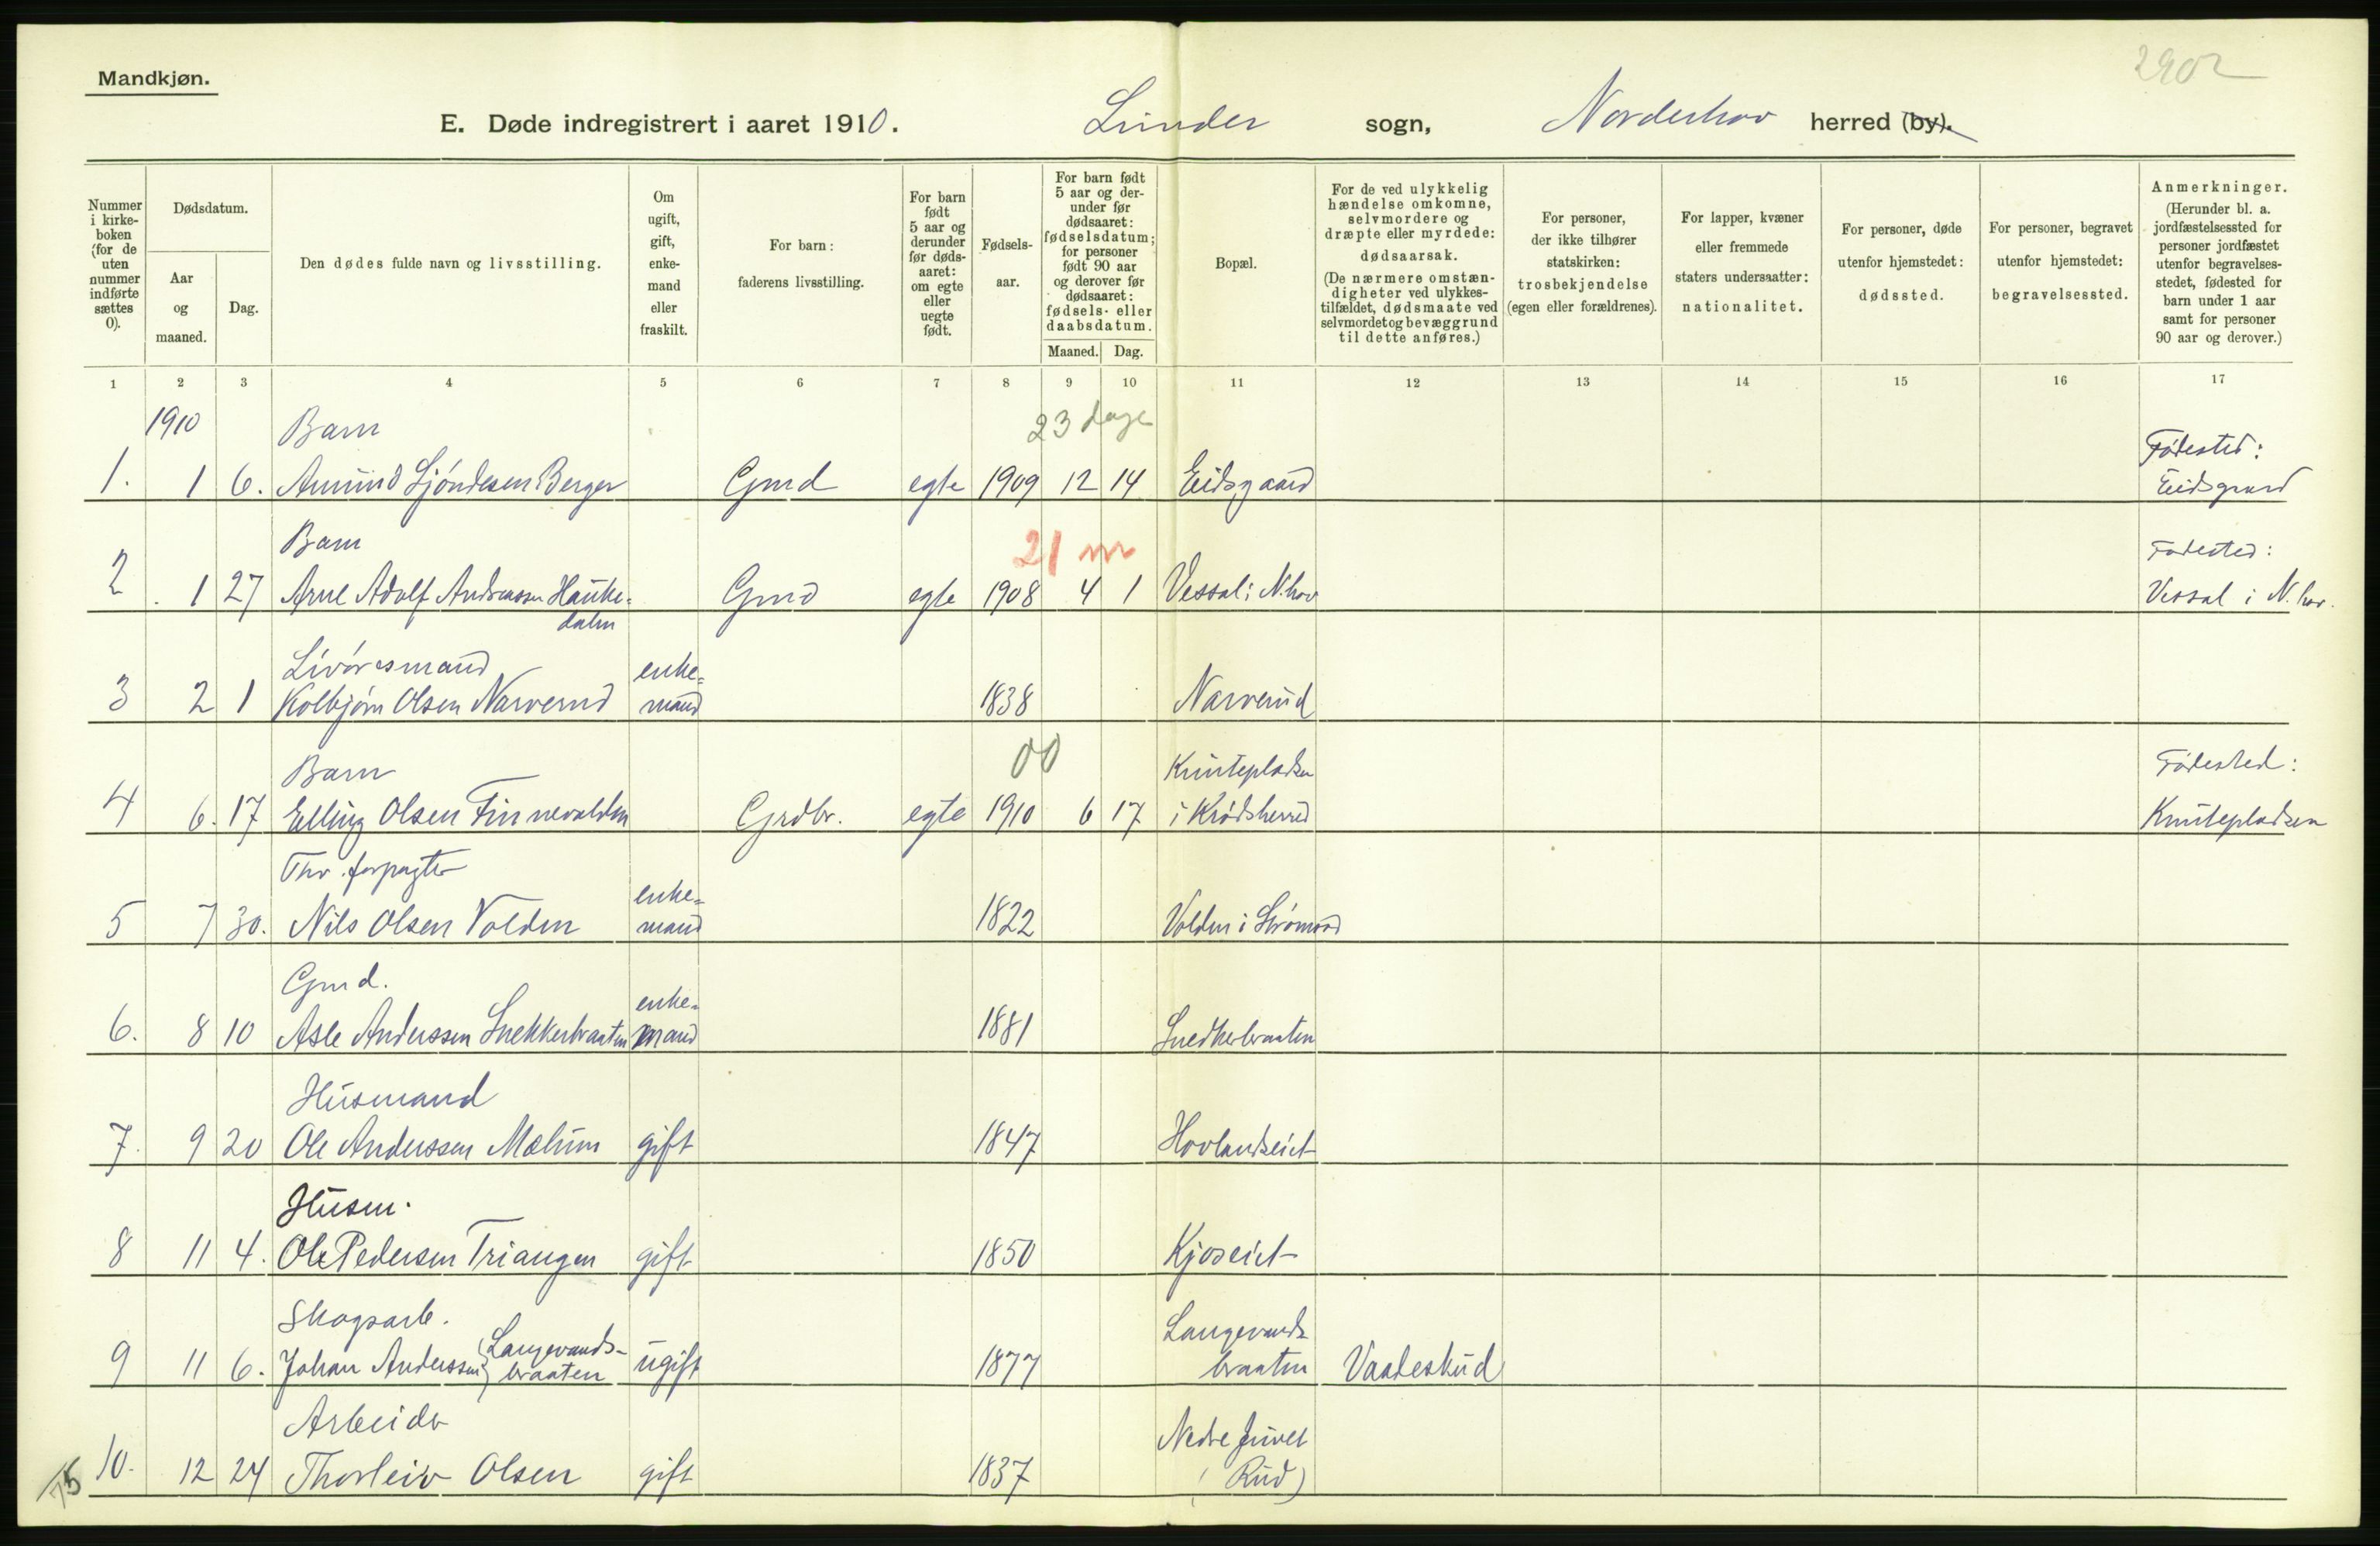 2902
Mandkjøn.
E. Døde indregistrert i aaret 1910. Lunder sogn, Norderhov herred (by).
Nummer i kirke-boken (for de uten nummer indførte sættes 0).
Dødsdatum.
Aar og maaned.
Dag.
Den dødes fulde navn og livsstilling.
Om ugift, gift, enke-mand eller fraskilt.
For barn: faderens livsstilling.
For barn født 5 aar og derunder før døds-aaret: om egte eller uegte født.
Fødsels-aar.
For barn født 5 aar og der-under før dødsaaret: fødselsdatum; for personer født 90 aar og derover før dødsaaret: fødsels- eller daabsdatum.
Maaned. Dag.
Bopæl.
For de ved ulykkelig hændelse omkomne, selvmordere og dræpte eller myrdede: dødsaarsak. (De nærmere omstæn-digheter ved ulykkes-tilfældet, dødsmaate ved selvmordet og bevæggrund til dette anføres.)
For personer, der ikke tilhører statskirken: trosbekjendelse (egen eller forældrenes).
For lapper, kvæner eller fremmede staters undersaatter: nationalitet.
For personer, døde utenfor hjemstedet: dødssted.
For personer, begravet utenfor hjemstedet: begravelsessted.
Anmerkninger. (Herunder bl. a. jordfæstelsessted for personer jordfæstet utenfor begravelses-stedet, fødested for barn under 1 aar samt for personer 90 aar og derover.)
1 2 3 4 5 6 7 8 9 10 11 12 13 14 15 16 17
1910 Barn 23 dage Fødested:
1. 1 6. Amund Sjøndesen Berger Gmd egte 1909 12 14 Eidsgaard Eidsgaard
Barn 21 m Fødested:
2 1 27 Arne Adolf Andreassen Hauke= Gmd egte 1908 4 1 Vessal i N.hov Vessal i N.hov.
dalen
Livøresmand enke=
3 2 1 Kolbjørn Olsen Narverud mand 1838 Narverud
Barn 00 Knutepladsen Fødested:
4 6. 17 Elling Olsen Finnevolden Grdbr. egte 1910 6 17 i Krødsherred Knutepladsen
Thv. forpagter enke=
5 7 30. Nils Olsen Volden mand 1822 Volden i
Gmd. enke=
6. 8 10 Asle Anderssen Snekkerbraaten mand 1881 Snedkerbraaten
Husmand
7. 9 20 Ole Anderssen Mælum gift 1847 Hovlandseiet
Husm.
8 11 4. Ole Pedersen Triangen gift 1850 Kjoseiet
Skogsarb. Langevands- Langevands
9 11 6. Johan Anderssen braaten ugift 1877 braaten Vaadeskud
Arbeider Nedre Juvet
10. 12 24 Thorleiv Olsen gift 1837 (Rud)
75